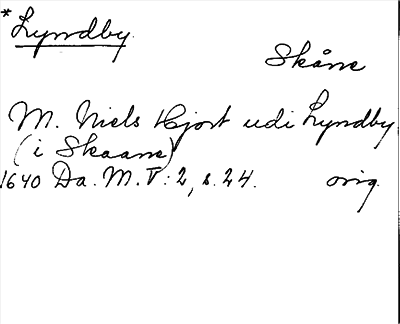 *Lyndby.
Skåne
M. Niels Hjort udi Lyndby
(i Skaane)
1640 Da. M. V: 2, s. 24. orig.